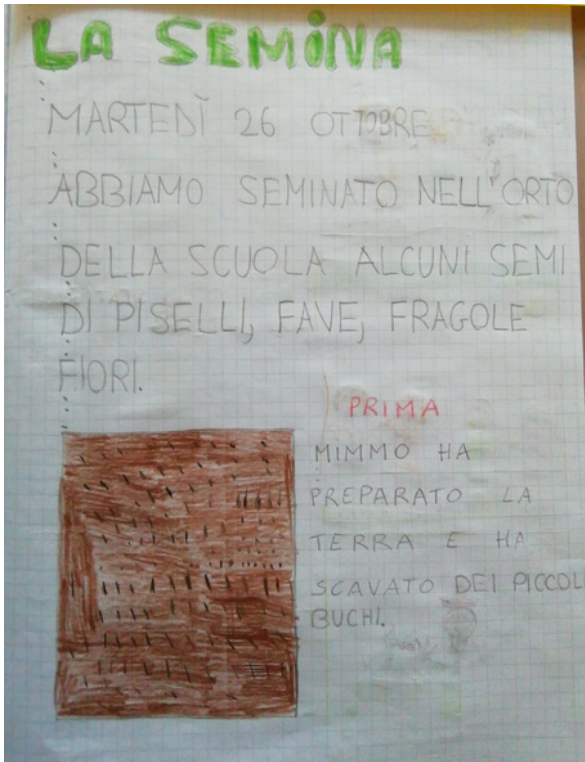 LA SEMINA
MARTEDÌ 26 OTTOBRE
ABBIAMO SEMINATO NELL'ORTO
DELLA SCUOLA ALCUNI SEMI
DI PISELLI, FAVE, FRAGOLE
FIORI.
PRIMA
MIMMO HA
PREPARATO LA
TERRA E HA
SCAVATO DEI PICCOL
BUCHI.